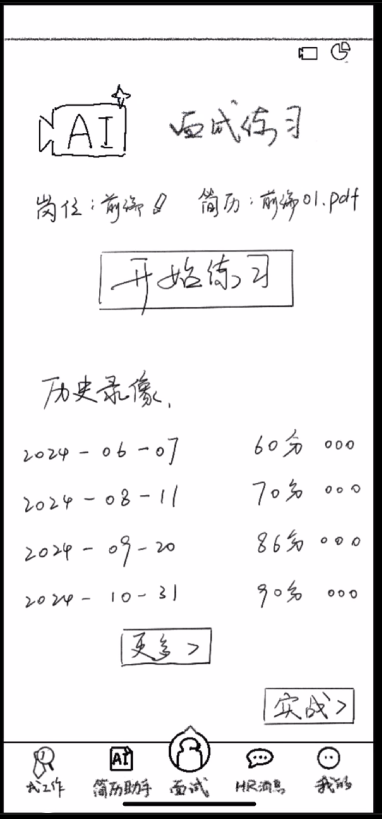 AI 面试练习
岗位：前端 简历：前端01.pdf
开始练习
历史录像
2024-06-07 60分 ooo
2024-08-11 70分 ooo
2024-09-20 86分 ooo
2024-10-31 90分 ooo
更多 >
实战 >
AI
找工作 简历助手 面试 HR消息 我的